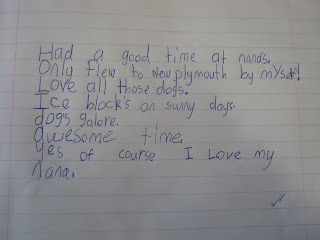 Had a good time at nands.
Only flew to New plymouth by myself!
Love all those dogs.
Ice block's on sunny days.
dogs galore.
awesome time.
Yes of course I Love my
nana.